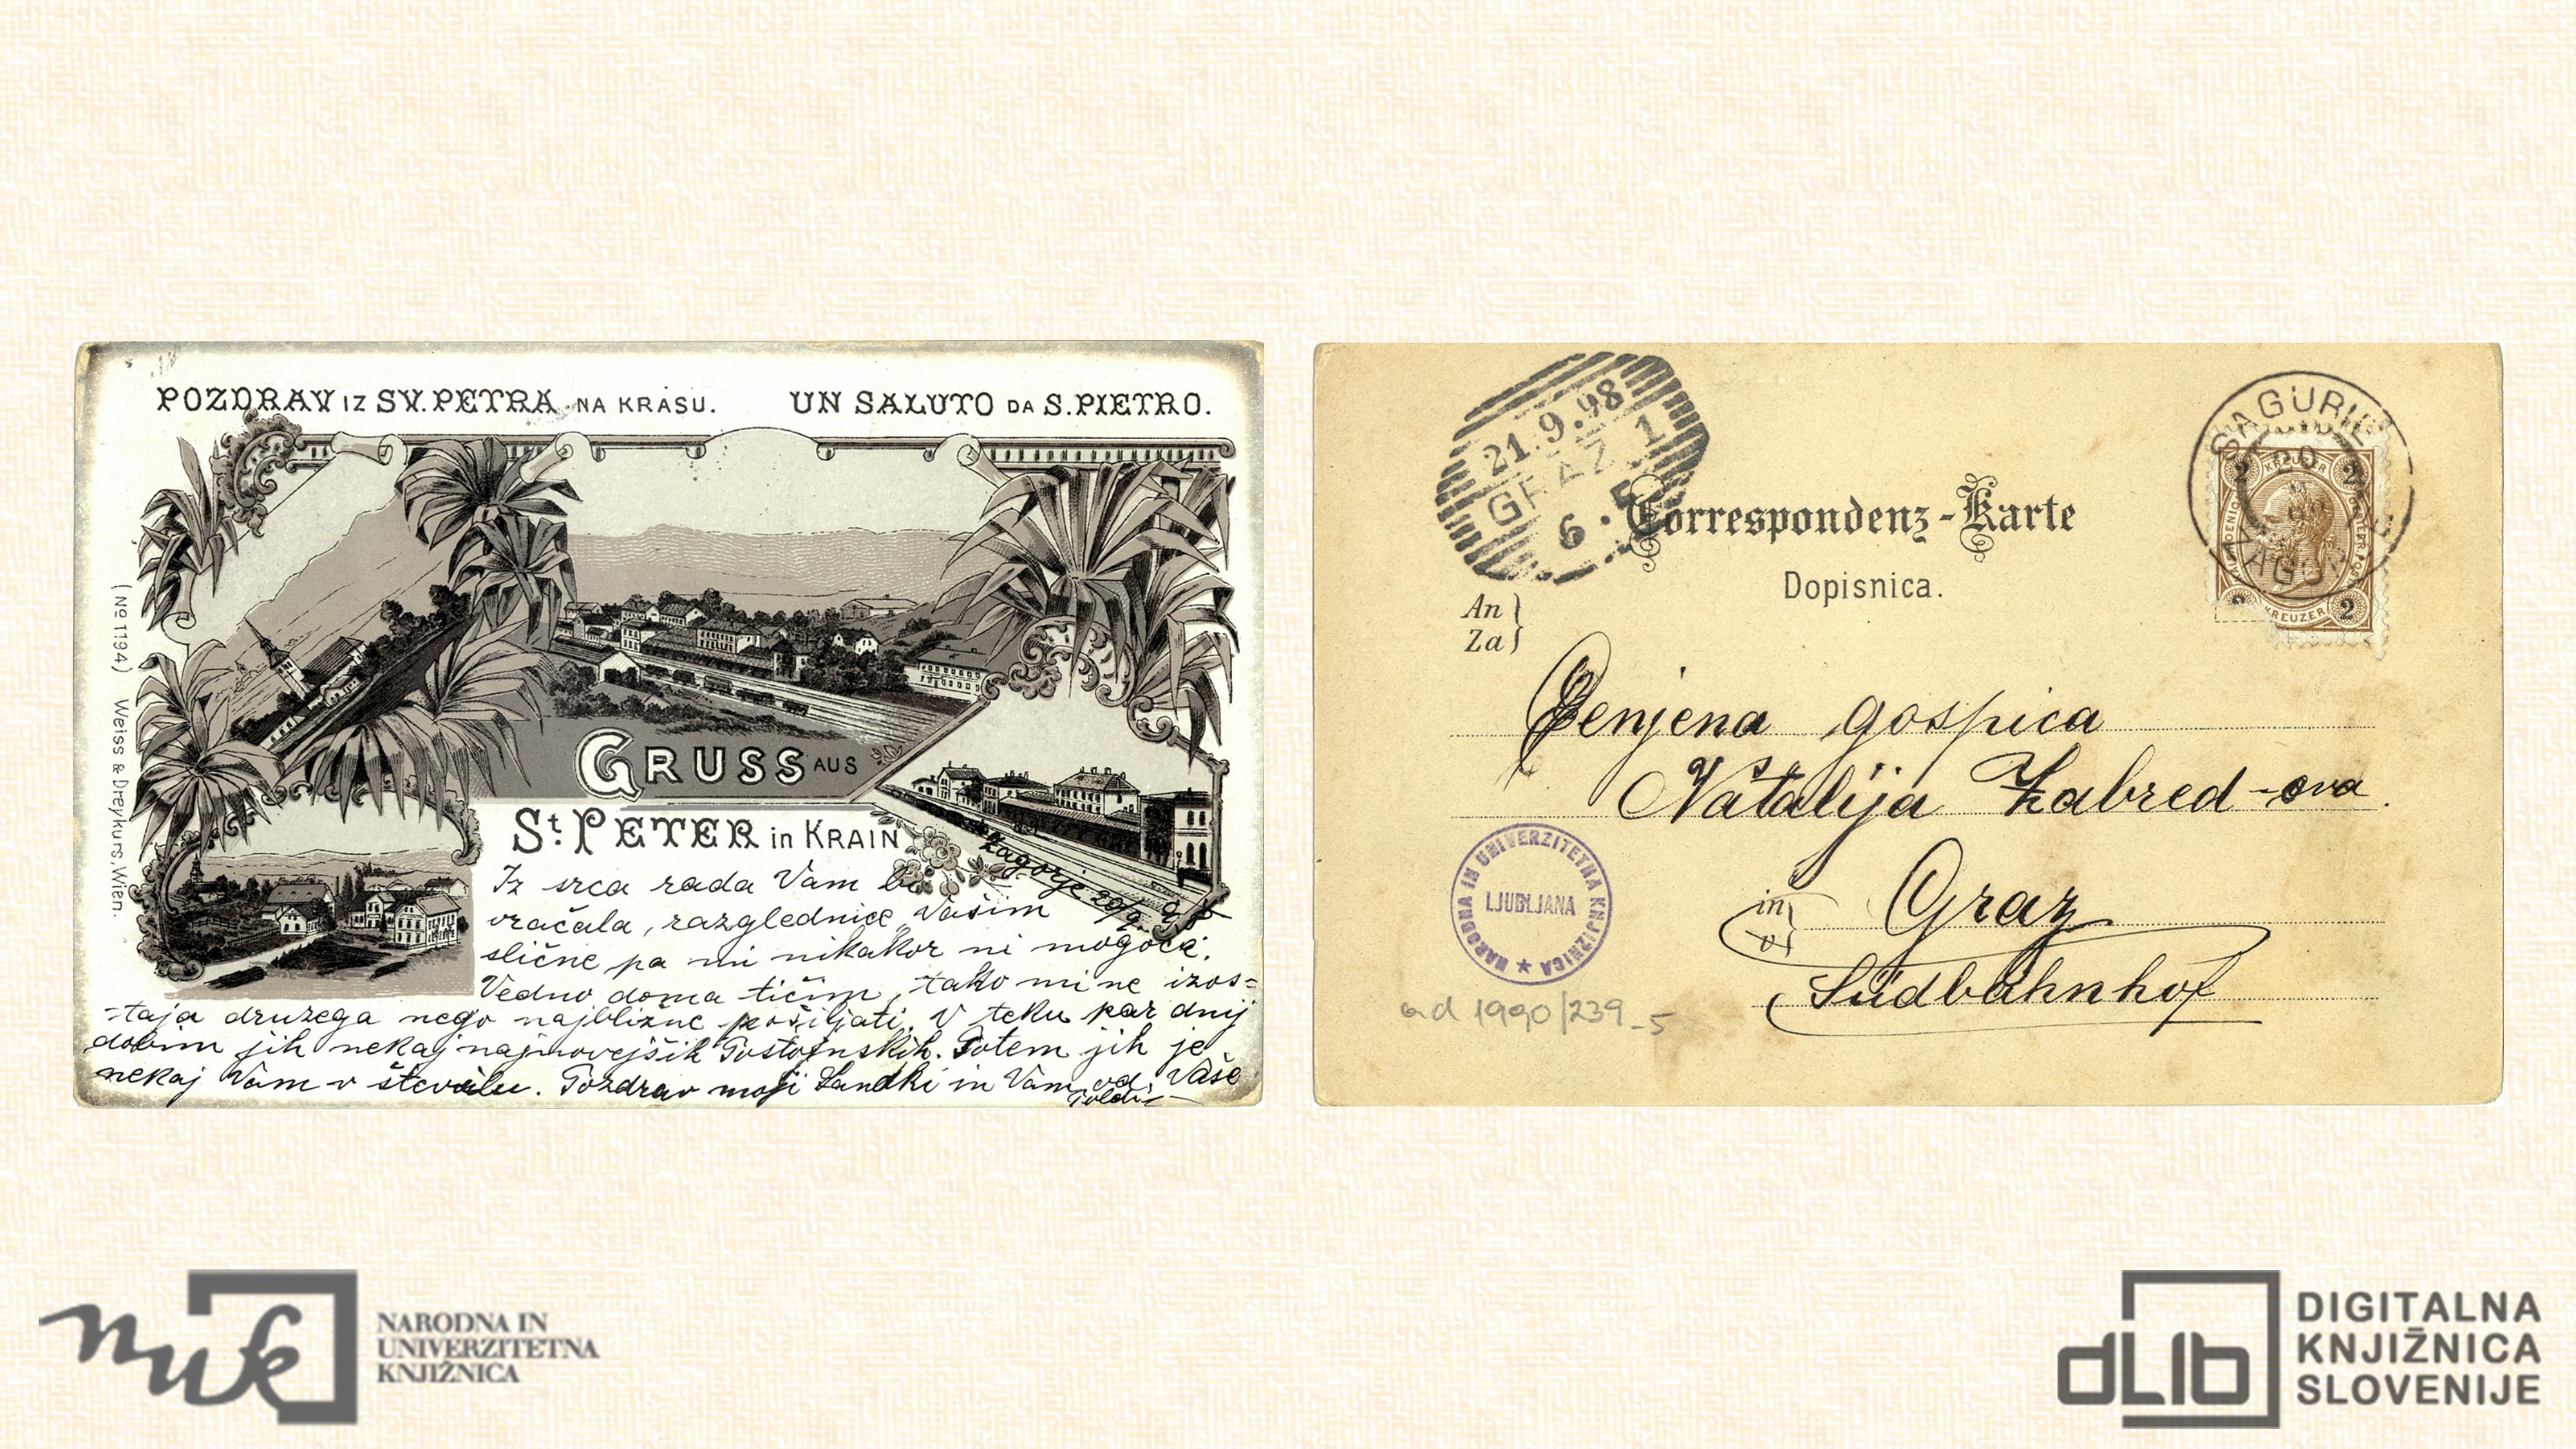 POZDRAV IZ SV. PETRA NA KRASU. UN SALUTO DA S. PIETRO.
(No 1194) Weiss & Dreykurs, Wien.
GRUSS AUS
St. PETER in KRAIN
Zagorje 20/9 98
Iz srca rada Vam bi
vračala, razglednice Vašim
slične pa mi nikakor ni mogoče.
Vedno doma tičim, tako mi ne izos=
-taja druzega nego najbližne pošiljati. V teku par dnij
dobim jih nekaj najnovejših Postojnskih. Potem jih je
nekaj Vam v številu. Pozdrav moji in Vam od Vaše
Poldi
21.9.98
GRAZ 1
6.
Correspondenz-Karte
Dopisnica.
SAGURIE
20
2 KREUZER 2
KREUZER 2
An
Za
Cenjena gospica
Natalija Zabred-ova.
in
v
Graz
Südbahnhof
NARODNA IN UNIVERZITETNA KNJIŽNICA ★
LJUBLJANA
ad 1990/239-5
nuk
NARODNA IN
UNIVERZITETNA
KNJIŽNICA
dLib
DIGITALNA
KNJIŽNICA
SLOVENIJE